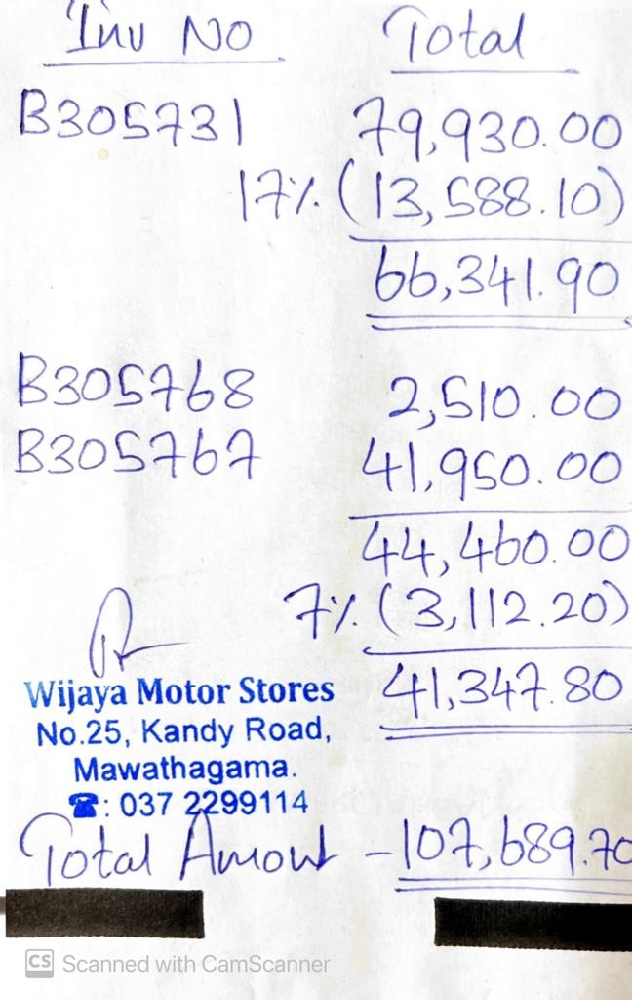 Inv No Total
B305731 79,930.00
17% (13,588.10)
66,341.90
B305768 2,510.00
B305767 41,950.00
44,460.00
7% (3,112.20)
41,347.80
Wijaya Motor Stores
No.25, Kandy Road,
Mawathagama.
☎: 037 2299114
Total Amount - 107,689.70
CS Scanned with CamScanner